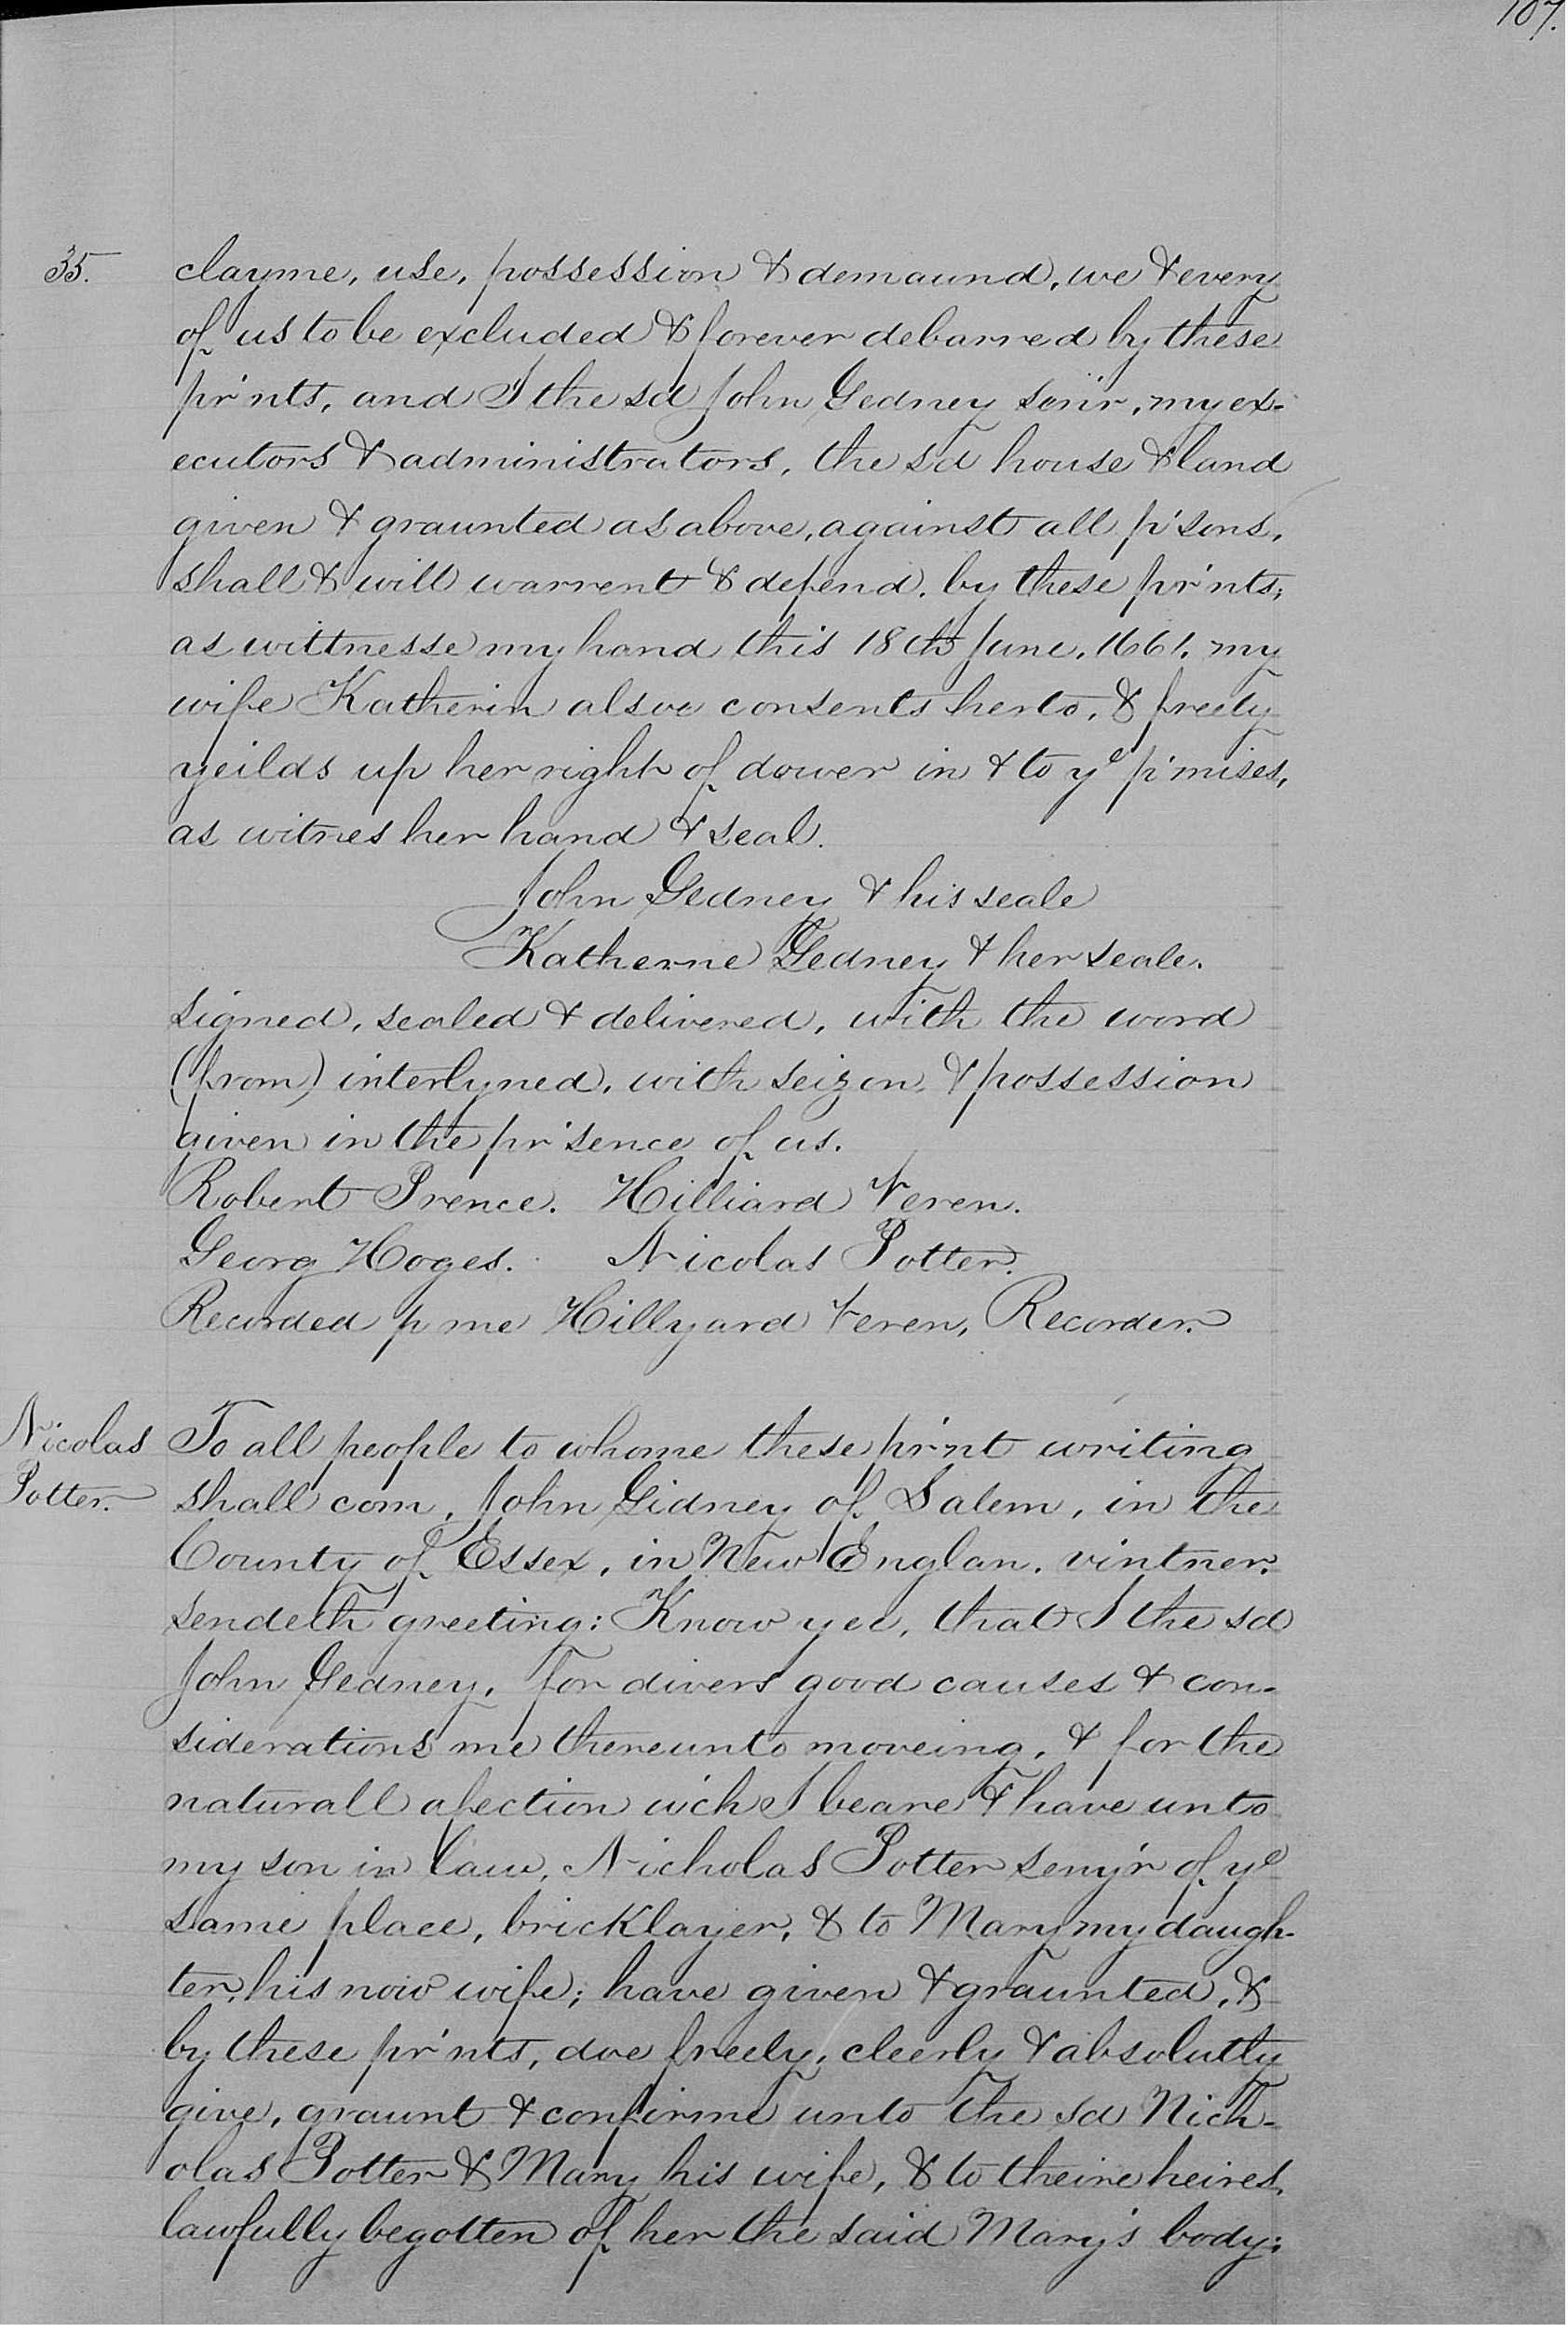 107.
35. clayme, use, possession & demaund, we & every
of us to be excluded & forever debarred by these
pr'nts, and I the sd John Gedney sen'r, my ex-
ecutors & administrators, the s'd house & land
given & graunted as above, against all p'sons,
shall & will warrent & defend, by these pr'nts;
as wittnesse my hand this 18th June, 1661, my
wife Katherin alsoe consents herto, & freely
yeilds up her right of dower in & to ye p'mises,
as witnes her hand & seal.
John Gedney & his seale
Katherne Gedney & her seale.
signed, sealed & delivered, with the word
(from) interlyned, with seizon, & possession
given in the pr'sence of us.
Robert Prence. Hilliard Veren.
Georg Hoges. Nicolas Potter.
Recorded p me Hillyard Veren, Recorder.
Nicolas To all people to whome these pr'nt writing
Potter. shall com, John Gidney of Salem, in the
County of Essex, in New Englan, vintner,
sendeth greeting: Know yee, that I the sd
John Gedney, for divers good causes & con-
siderations me thereunto moveing, & for the
naturall afection w'ch I beare & have unto
my son in law, Nicholas Potter seny'r of ye
same place, bricklayer, & to Mary my daugh-
ter, his now wife; have given & graunted, &
by these pr'nts, doe freely, cleerly & absolutly
give, graunt & confirme unto the sd Nich-
olas Potter & Mary his wife, & to theire heires,
lawfully begotten of her the said Mary's body;